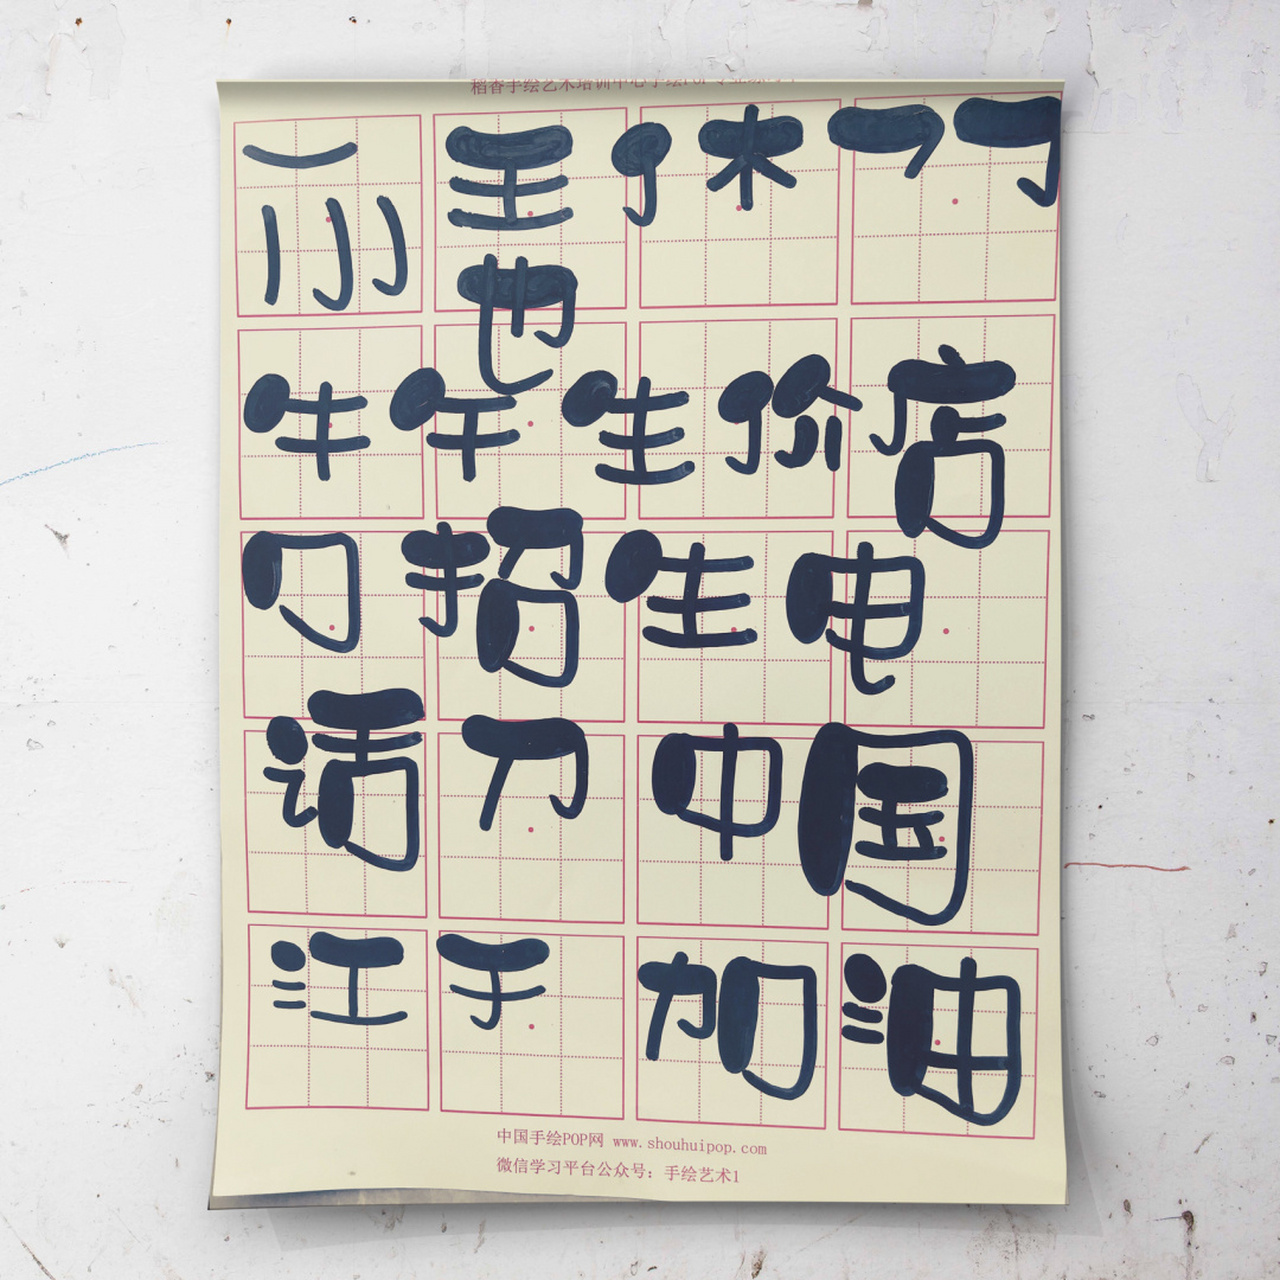 稻香手绘艺术培训中心手绘POP专业
一 丨 亅 亅 王 休
也
牛 午 生 价 店
口 招 生 电
话 刀 中 国
江 于 加 油
中国手绘POP网 www.shouhuipop.com
微信学习平台公众号：手绘艺术1